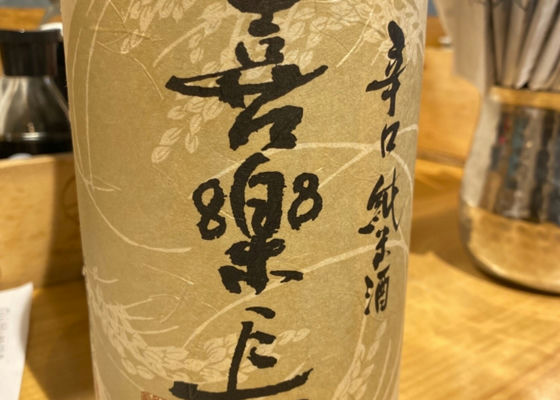 喜樂長
辛口 純米酒